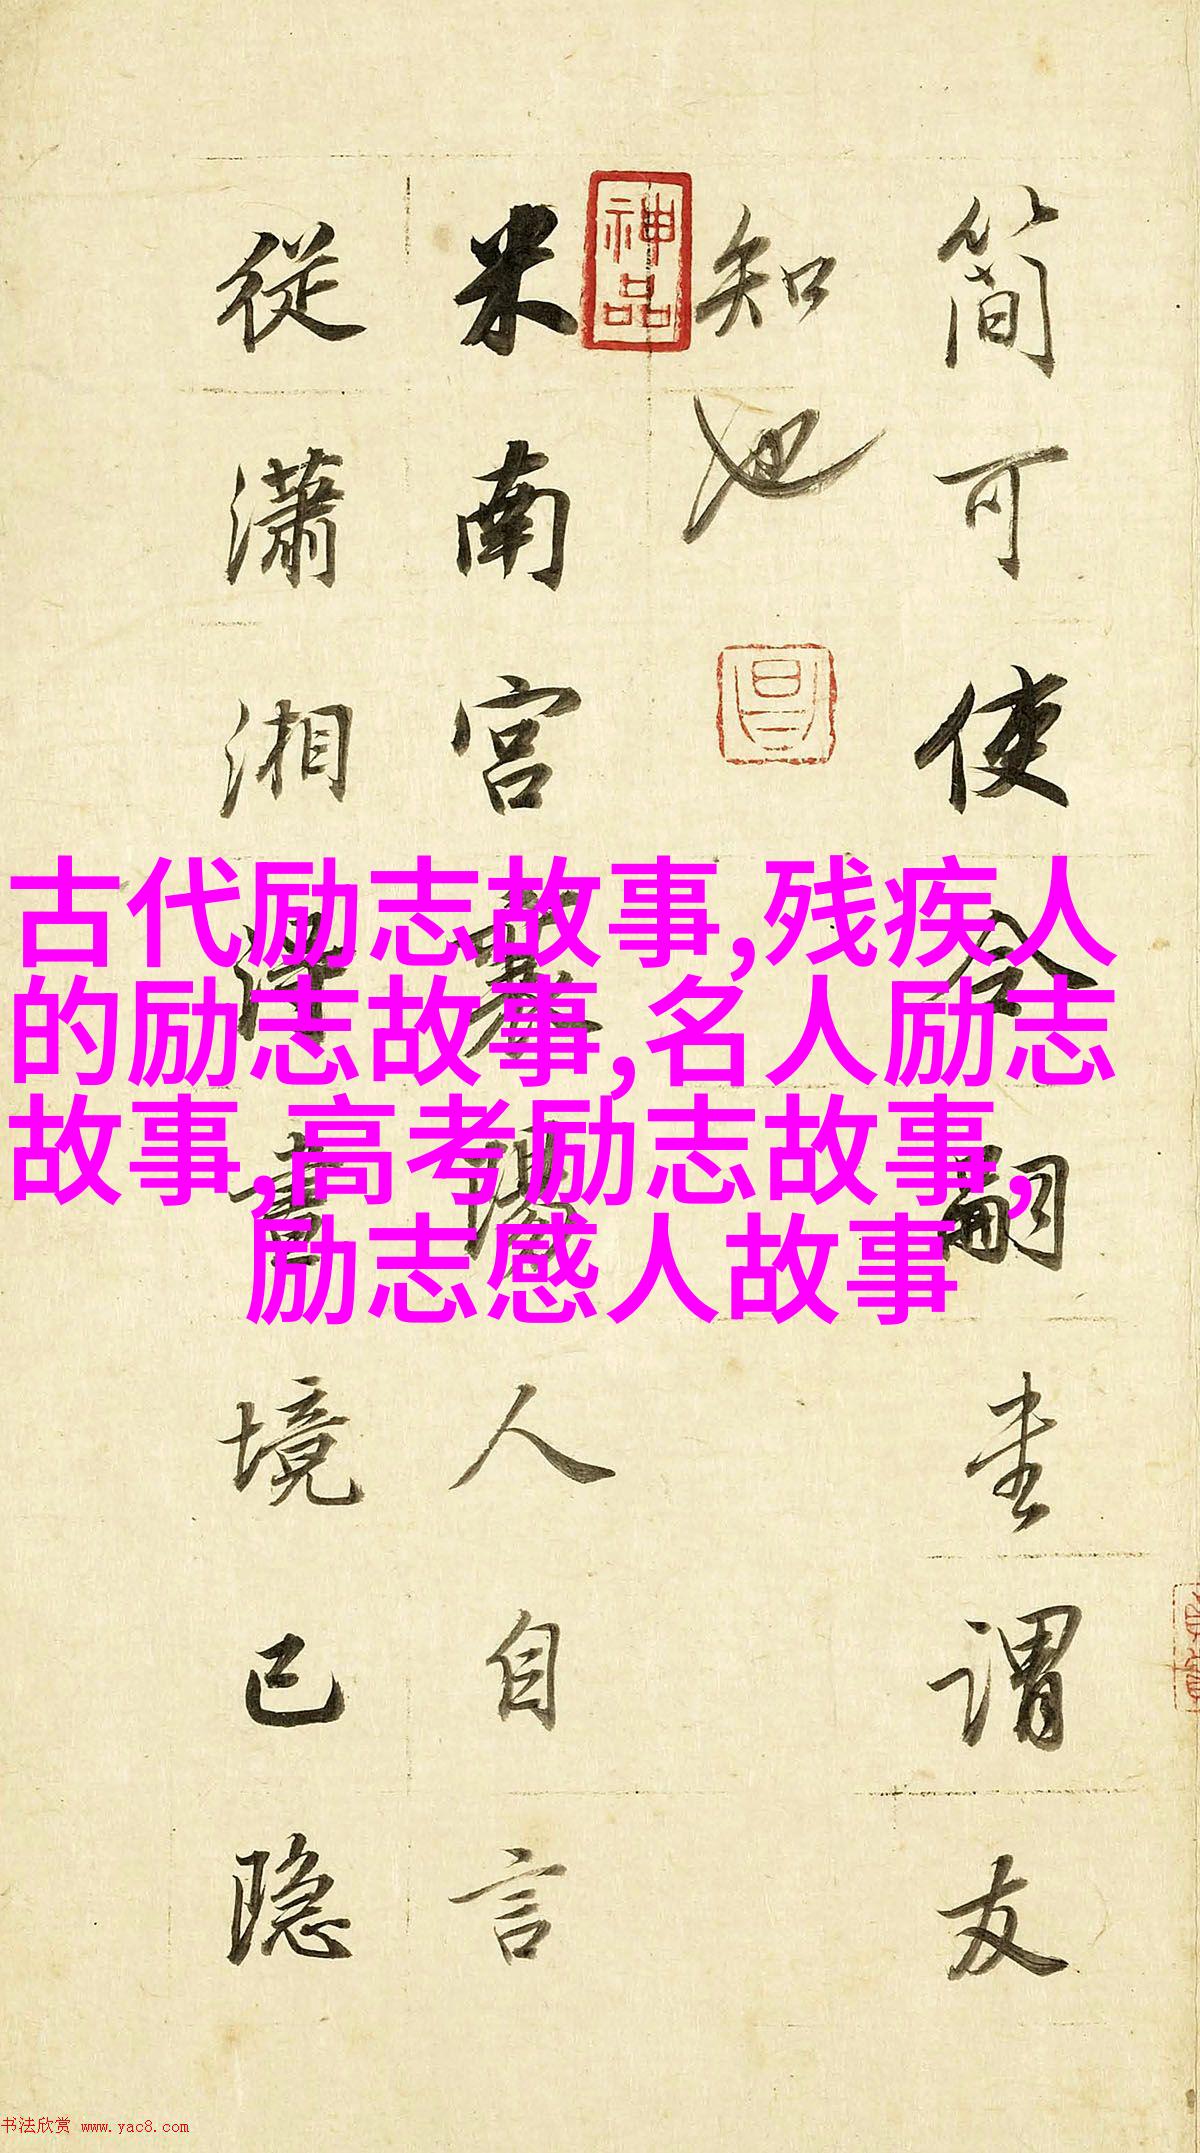 简可使令嗣圭谓友
知也
米南宫摹
人自言
從瀟湘得畫境已隐
神品
昌
古代励志故事,残疾人
的励志故事,名人励志
故事,高考励志故事,
励志感人故事
书法欣赏 www.yac8.com